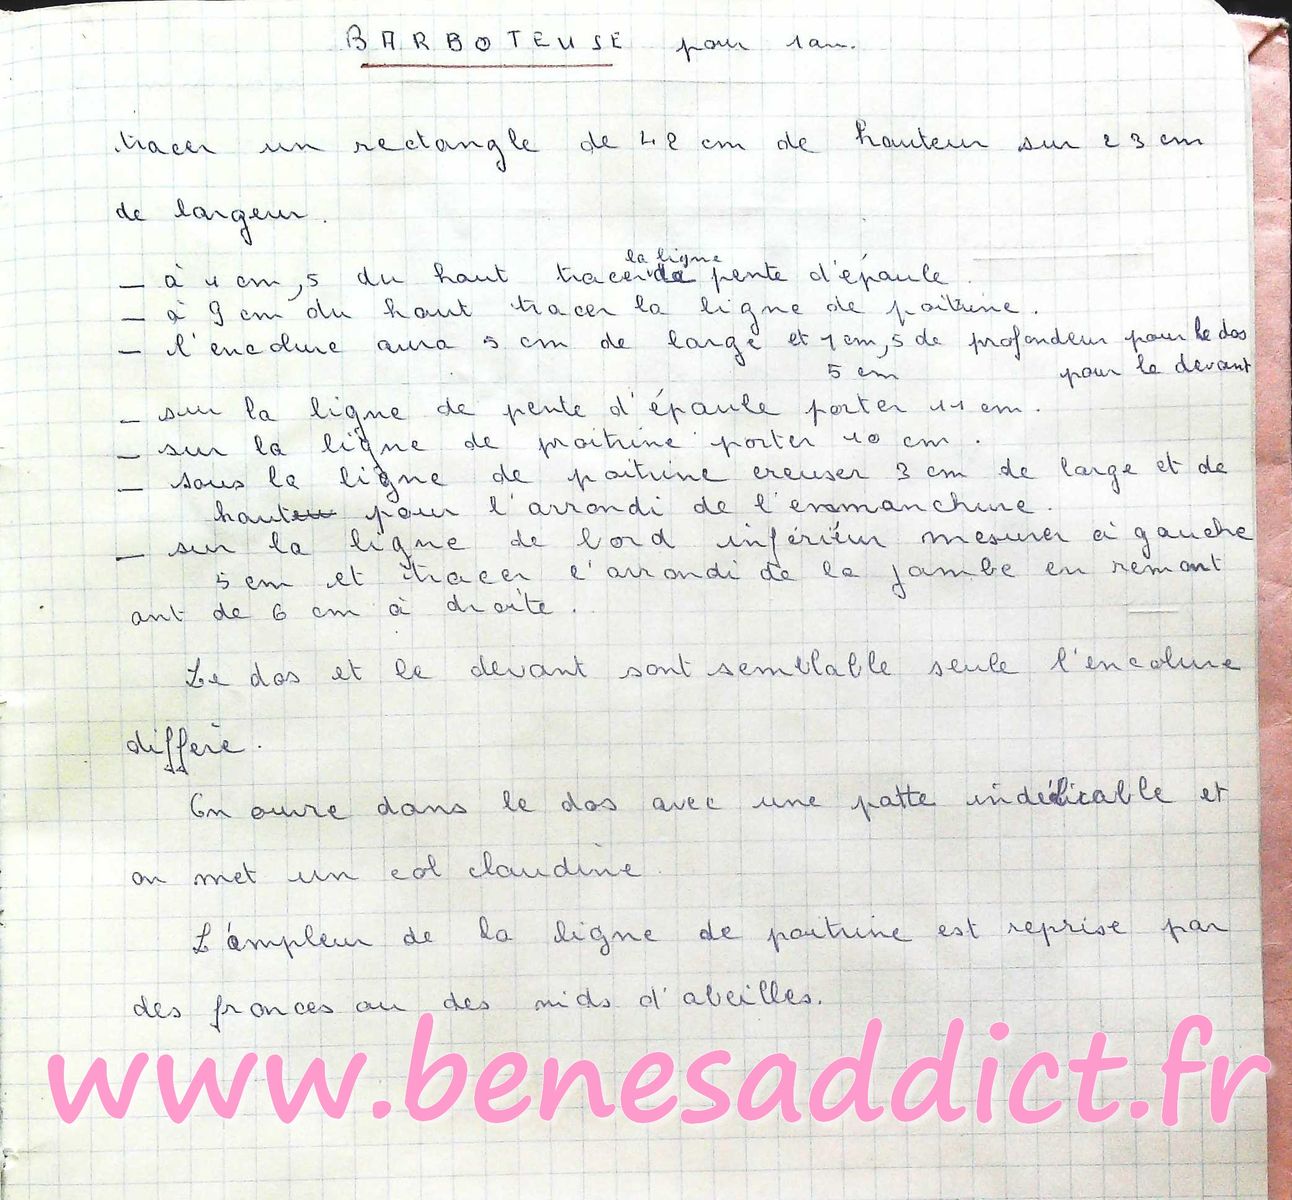 BARBOTEUSE pour 1 an.
tracer un rectangle de 42 cm de hauteur sur 23 cm
de largeur.
la ligne
_ à 4 cm,5 du haut tracer de pente d'épaule.
_ à 9 cm du haut tracer la ligne de poitrine.
_ l'encolure aura 5 cm de large et 1 cm,5 de profondeur pour le dos
5 cm pour le devant
_ sur la ligne de pente d'épaule porter 11 cm.
_ sur la ligne de poitrine porter 10 cm.
_ sous la ligne de poitrine creuser 3 cm de large et de
haut pour l'arrondi de l'emmanchure.
_ sur la ligne de bord inférieur mesurer à gauche
5 cm et tracer l'arrondi de la jambe en remont
ant de 6 cm à droite.
Le dos et le devant sont semblable seule l'encolure
diffère.
On ouvre dans le dos avec une patte indéficable et
on met un col claudine.
L'ampleur de la ligne de poitrine est reprise par
des fronces ou des nids d'abeilles.
www.benesaddict.fr